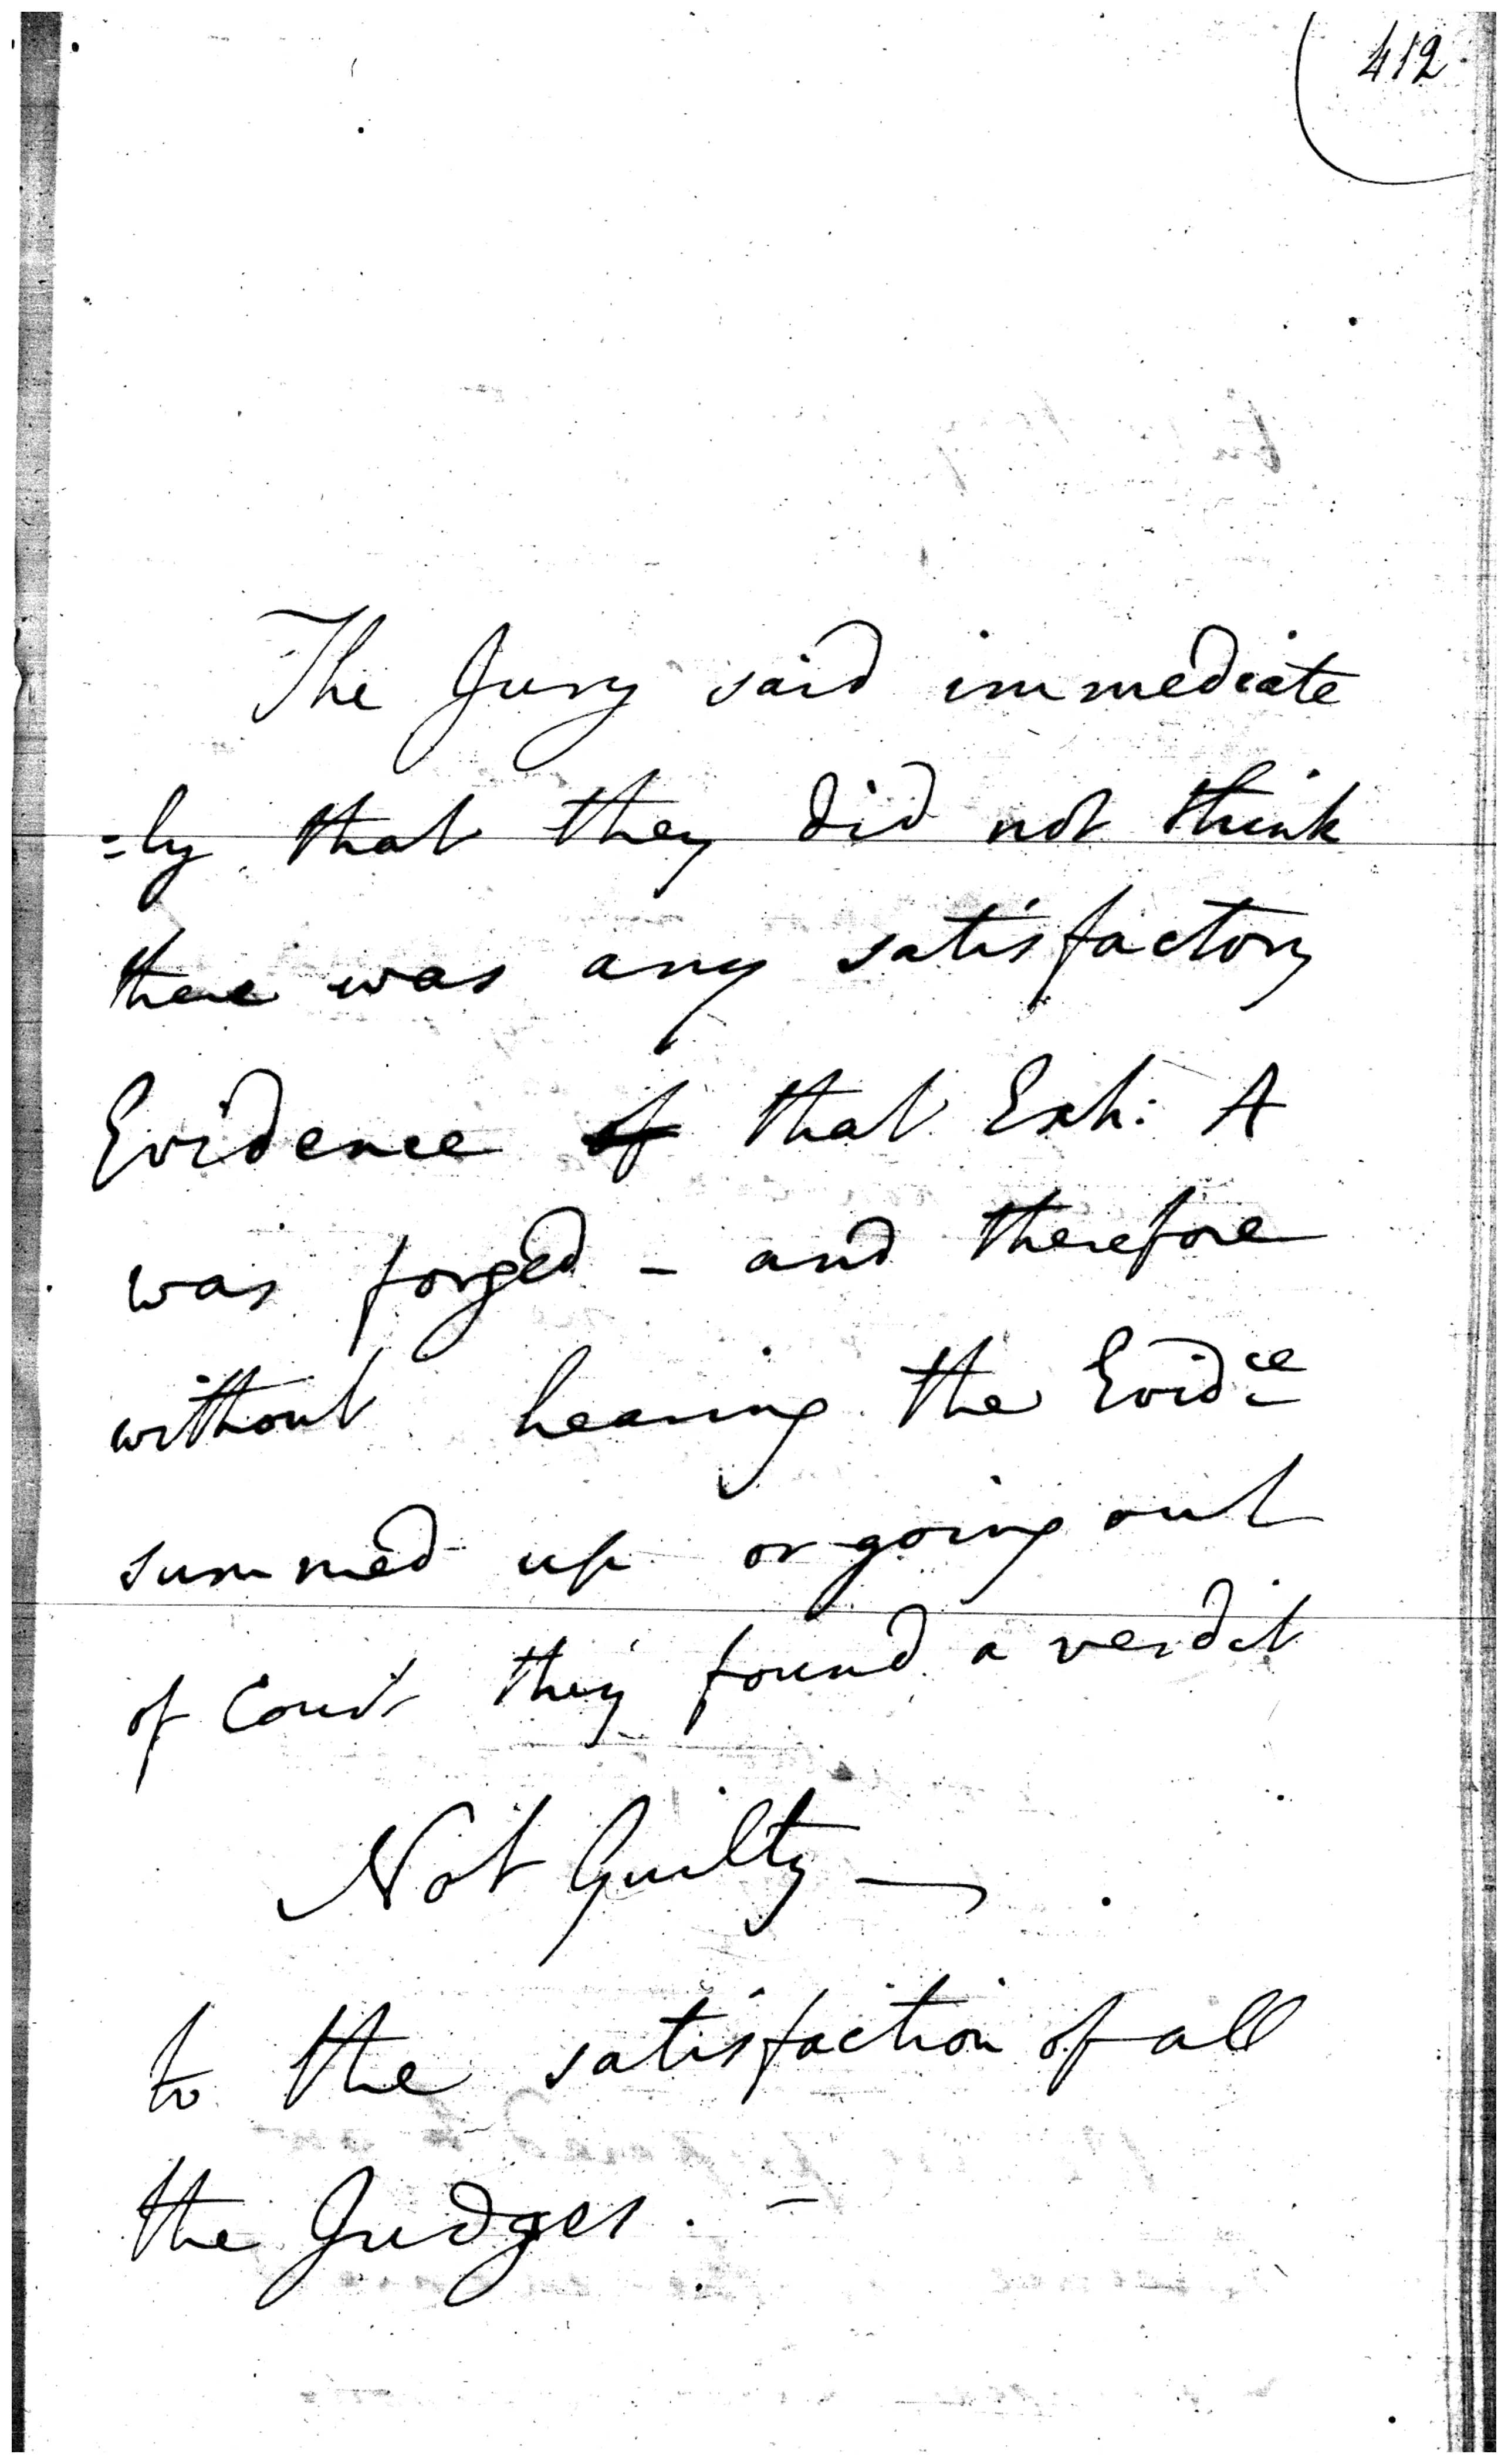 412
The Jury said immediate
=ly that they did not think
there was any satisfactory
Evidence of that Exh: A
was forged - and therefore
without hearing the Evidce
summed up or going out
of Court they found a verdit
Not Guilty —
to the satisfaction of all
the Judges. -